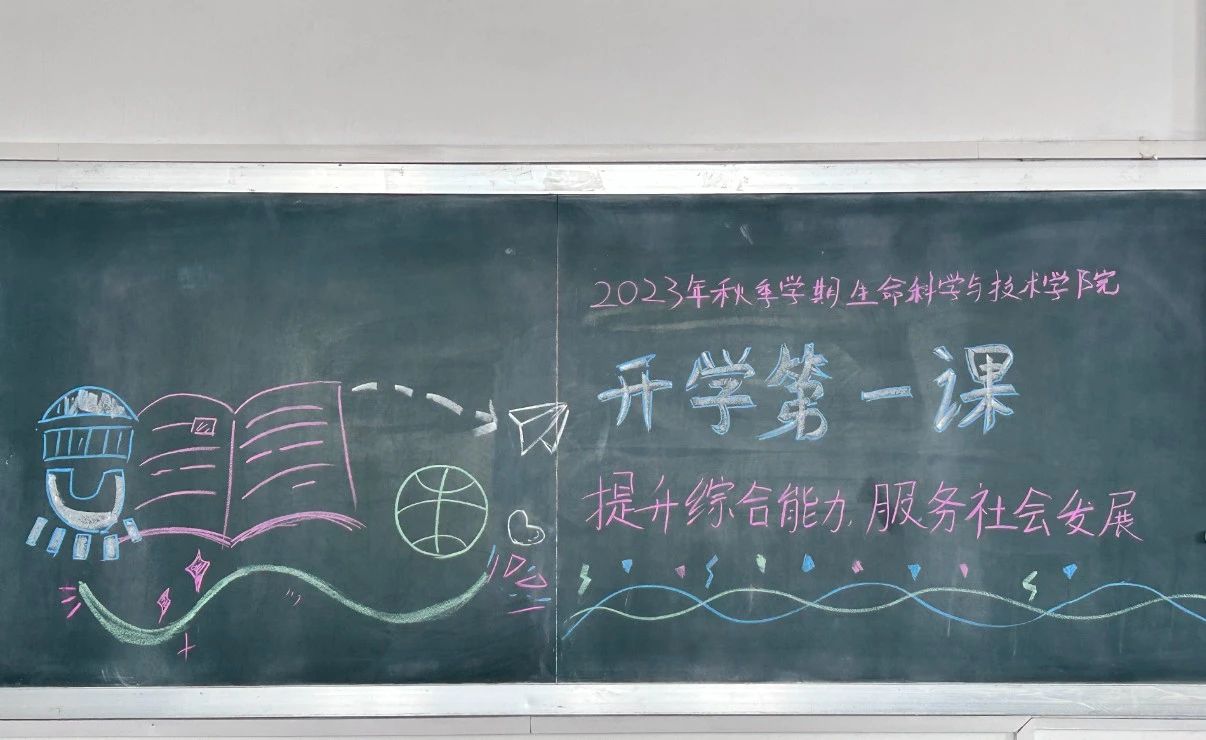 2023年秋季学期生命科学与技术学院
开学第一课
提升综合能力,服务社会发展